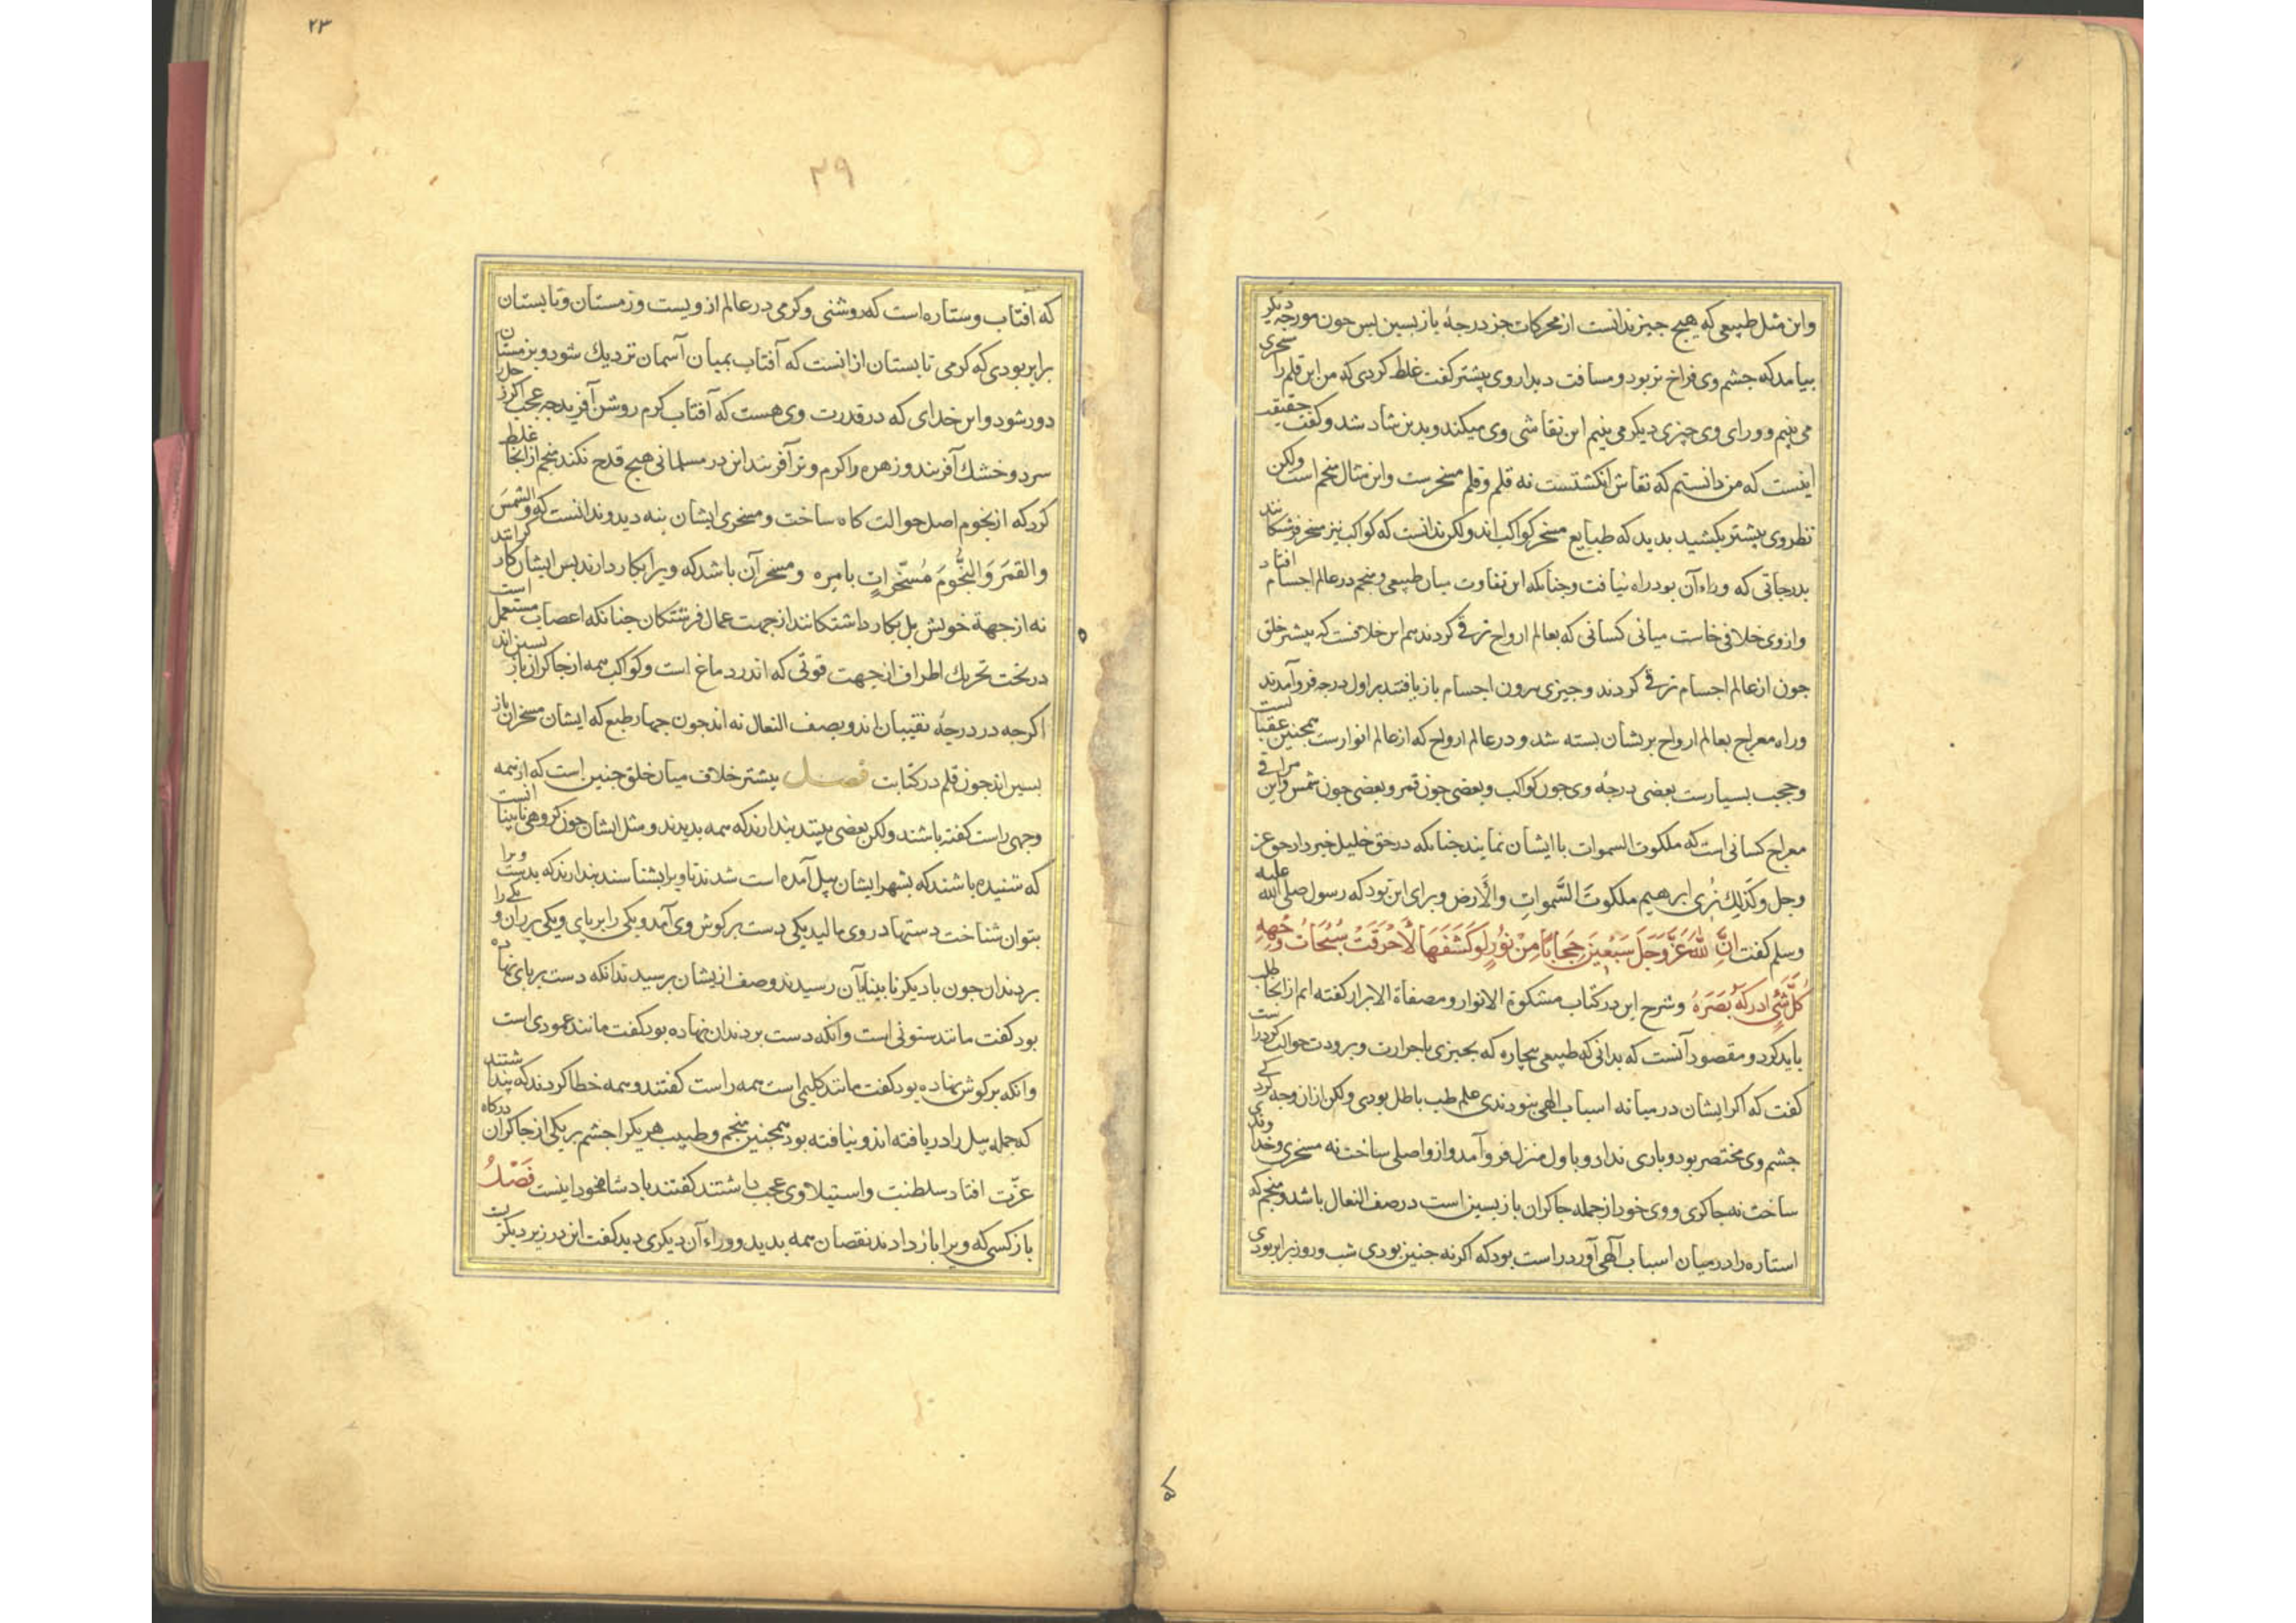 واین مثل طبیعی که هیچ جیز ندانست از محرکات جز درجهٔ بازبسین بس جون مورجه دیکر
بیامد که جشم وی فراخ تر بود و مسافت دیدار وی پیشتر کفت غلط کردی که من این قلم را مسخری
می بینم و ورای وی چیزی دیکر می بینم این نقاشی وی میکند وبدین شاد شد وکفت حقیقت
اینست که من دانستم که نقاش انکشتست نه قلم وقلم مسخرست واین مثال منجم است ولکن
نظر وی بیشتر بکشید بدید که طبایع مسخر کواکب اند ولکن ندانست که کواکب نیز مسخر فرشتکانند
بدرجاتی که وراء آن بود راه نیافت وجنانکه این تفاوت میان طبیعی ومنجم در عالم اجسام افتاد
وازوی خلافی خاست میانی کسانی که بعالم ارواح ترقی کردند هم این خلافست که بیشتر خلق
جون از عالم اجسام ترقی کردند وجیزی بیرون اجسام بازیافتند بر اول درجه فروآمدند
وراه معراج بعالم ارواح بریشان بسته شد و در عالم ارواح که از عالم انوارست همجنین عقبا تست
وحجب بسیارست بعضی درجهٔ وی جون کواکب وبعضی جون قمر وبعضی جون شمس واین مراقی
معراج کسانی است که ملکوت السموات باایشان نمایند جنانکه در حق خلیل خبر داد حق عز
وجل وکذلک نری ابرهیم ملکوت السَّموات والأرض وبرای این بود که رسول صلی الله علیه
وسلم کفت انَّ للهَ عَزَّ وَجَلَ سَبْعینَ حِجَاباً مِنْ نُورٍ لَوکَشَفَهَا لَأحْرَقَتْ سُبُحَاتُ وَجْهِهِ
کُلَّ شَئٍ ادرکهُ بَصَرَهُ وشرح این در کتاب مشکوة الانوار ومصفاة الاسرار کفته ایم از انجا طلب
باید کرد ومقصود آنست که بدانی که طبیعی بیچاره که بجیزی باحرارت وبرودت حوالت کرد راست
کفت که اکر ایشان در میانه اسباب الهی نبودندی علم طب باطل بودی ولکن ازان وجه کرد کی
جشم وی مختصر بود ویاری نداد وباول منزل فروآمد وازو اصلی ساخت نه مسخری وخداوندی
ساخت نه جاکری ووی خود از جمله جاکران بازبسین است در صف النعال باشد ومنجم که
استاره را درمیان اسباب آلهی آورد راست بود که اکر نه جنین بودی شب وروز برابر بودی
۲۳
۲۹
که افتاب وستاره است که روشنی وکرمی در عالم ازویست وزمستان وتابستان
برابر بودی که کرمی تابستان ازانست که آفتاب بمیان آسمان نزدیک شود وبزمستان
دور شود واین خدای که در قدرت وی هست که آفتاب کرم روشن آفرید جه عجب اکر زحل را
سرد وخشک آفریند وزهره را کرم وتر آفریند این در مسلمانی هیچ قدح نکند منجم ازانجا غلط
کرد که از نجوم اصل حوالت کاه ساخت ومسخری ایشان بنه دید وندانست که والشمسَ
والقمَرَ وَالنُّجُومَ مُسَخّراتٍ بامره ومسخر آن باشد که ویرا بکار دارند بس ایشان کار کرانند
نه از جهة خویش بل بکار داشتکانند از جهت عمال فرشتکان جنانکه اعصاب مستعمل است
در تحت تحریک اطراف از جهت قوتی که اندر دماغ است وکواکب همه از جاکران باز بسین اند
اکرجه در درجهٔ نقیبان اند وبصف النعال نه اند جون جهار طبع که ایشان مسخران باز
بسین اند جون قلم در کتابت فصل بیشتر خلاف میان خلق جنین است که از همه
وجهی راست کفته باشند ولکن بعضی بینند بندارند که همه بدیدند ومثل ایشان جون کروهی نابینا انست
که شنیده باشند که بشهر ایشان پیل آمده است شدند تا ویرا بشناسند بندارند که بدست ویرا
بتوان شناخت دستها در وی مالید یکی دست بر کوش وی آمد ویکی را بر پای ویکی بر ران ویکی را
بر دندان جون با دیکر نابینایان رسیدند وصف از یشان برسیدند آنکه دست بر پای نهاده
بود کفت مانند ستونی است وانکه دست بر دندان نهاده بود کفت مانند عمودی است
وانکه بر کوش نهاده بود کفت مانند کلیمی است همه راست کفتند وهمه خطا کردند که پنداشتند
که جمله پیل را دریافته اند ونیافته بود همجنین منجم وطبیب هر یکرا جشم بر یکی از جاکران درکاه
عزّت افتاد سلطنت واستیلا وی عجب داشتند کفتند بادشاه خود اینست فَصْلُ
باز کسی که ویرا باز دادند نقصان همه بدید ووراء آن دیکری دید کفت این در زیر دیکرت